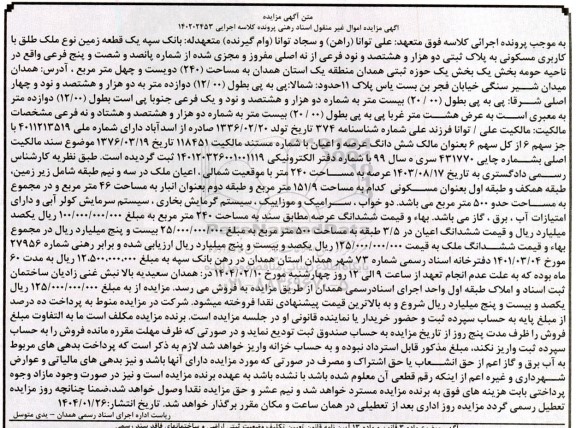 متن آگهی مزایده
آگهی مزایده اموال غیر منقول اسناد رهنی پرونده کلاسه اجرایی ۱۴۰۲۰۲۴۵۳
به موجب پرونده اجرائی کلاسه فوق متعهد: علی توانا (راهن) و سجاد توانا (وام گیرنده) متعهدله: بانک سپه یک قطعه زمین نوع ملک طلق با
کاربری مسکونی به پلاک ثبتی دو هزار و هشتصد و نود فرعی از نه اصلی مفروز و مجزی شده از شماره پانصد و شصت و پنج فرعی واقع در
ناحیه حومه بخش یک بخش یک حوزه ثبتی همدان منطقه یک استان همدان به مساحت (۲۴۰) دویست و چهل متر مربع ، آدرس: همدان
میدان شیر سنگی خیابان فجر بن بست یاس پلاک ۱۱حدود: شمالا:پی به پی بطول (۱۲/۰۰) دوازده متر به دو هزار و هشتصد و نود و چهار
اصلی شرقا: پی به پی بطول (۲۰/۰۰) بیست متر به شماره دو هزار و هشتصد و نود و یک فرعی جنوبا پی است بطول (۱۲/۰۰) دوازده متر
به معبری است به عرض هشت متر غربا پی به پی بطول (۲۰/۰۰) بیست متر به شماره دو هزار و هشتصد و هشتاد و نه فرعی مشخصات
مالکیت: مالکیت علی / توانا فرزند علی شماره شناسنامه ۳۷۴ تاریخ تولد ۱۳۳۶/۰۲/۲۰ صادره از اسدآباد دارای شماره ملی ۴۰۱۱۲۱۳۵۱۹ با
جز سهم ۶ از کل سهم ۶ بعنوان مالک شش دانگ عرصه و اعیان با شماره مستند مالکیت ۱۱۸۴۵۱ تاریخ ۱۳۷۶/۰۳/۱۹ موضوع سند مالکیت
اصلی بشماره چاپی ۴۳۱۷۷۰ سری ه سال ۹۹ با شماره دفتر الکترونیکی ثبت گردیده است. طبق نظریه کارشناس
رسمی دادگستری به تاریخ ۱۴۰۳/۰۸/۱۷ عرصه به مساحت ۲۴۰ متر با موقعیت شمالی . اعیان ملک در سه و نیم طبقه شامل زیر زمین،
طبقه همکف و طبقه اول بعنوان مسکونی کدام به مساحت ۱۵۱/۹ متر مربع و طبقه دوم بعنوان انبار به مساحت ۴۶ متر مربع و در مجموع
به مساحت حدو ۵۰۰ متر مربع می باشد. دو خواب ، سرامیک و موزاییک ، سیستم گرمایش بخاری ، سیستم سرمایش کولر آبی و دارای
امتیازات آب ، برق ، گاز می باشد. بهاء و قیمت ششدانگ عرصه مطابق سند به مساحت ۲۴۰ متر مربع به مبلغ ۱۰۰/۰۰۰/۰۰۰/۰۰۰ ریال یکصد
میلیارد ریال و قیمت ششدانگ اعیان در ۳/۵ طبقه به مساحت ۵۰۰ متر مربع به مبلغ ۲۵/۰۰۰/۰۰۰/۰۰۰ بیست و پنج میلیارد ریال در مجموع
بهاء و قیمت ششدانگ ملک به قیمت ۱۲۵/۰۰۰/۰۰۰/۰۰۰ ریال یکصد و بیست و پنج میلیارد ریال ارزیابی شده و برابر رهنی شماره ۲۷۹۵۶
مورخ ۱۴۰۱/۰۳/۰۴ دفترخانه اسناد رسمی شماره ۷۳ شهر همدان استان همدان در رهن بانک سپه به مبلغ ۱۲.۵۰۰.۰۰۰.۰۰۰ ریال به مدت ۶۰
ماه بوده که به علت عدم انجام تعهد از ساعت ۹ الی ۱۲ روز چهارشنبه مورخ ۱۴۰۴/۰۲/۱۰ در: همدان سعیدیه بالا نبش غنی زادیان ساختمان
ثبت اسناد و املاک طبقه اول واحد اجرای اسنادرسمی همدان از طریق مزایده به فروش می رسد. مزایده از به مبلغ ۱۲۵/۰۰۰/۰۰۰/۰۰۰ ریال
یکصد و بیست و پنج میلیارد ریال شروع و به بالاترین قیمت پیشنهادی نقدا فروخته میشود. شرکت در مزایده منوط به پرداخت ده درصد
از مبلغ پایه به حساب سپرده ثبت و حضور خریدار یا نماینده قانونی او در جلسه مزایده است. برنده مزایده مکلف است ما به التفاوت مبلغ
فروش را ظرف مدت پنج روز از تاریخ مزایده به حساب صندوق ثبت تودیع نماید و در صورتی که ظرف مهلت مقرره مانده فروش را به حساب
سپرده ثبت واریز نکند، مبلغ مذکور قابل استرداد نبوده و به حساب خزانه واریز خواهد شد لازم به ذکر است که پرداخت بدهی های مربوط
به آب برق و گاز اعم از حق انشعاب یا حق اشتراک و مصرف در صورتی که مورد مزایده دارای آنها باشد و نیز بدهی های مالیاتی و عوارض
شهرداری و غیره اعم از اینکه رقم قطعی آن معلوم شده باشد یا نشده باشد به عهده برنده مزایده است و نیز در صورت وجود مازاد وجوه
پرداختی بابت هزینه های فوق به برنده مزایده مسترد خواهد شد و نیم عشر و حق مزایده نقدا وصول خواهد شد،ضمنا چنانچه روز مزایده
تعطیل رسمی گردد مزایده روز اداری بعد از تعطیلی در همان ساعت و مکان مقرر برگذار خواهد شد. تاریخ انتشار:۱۴۰۴/۰۱/۲۶
ریاست اداره اجرای اسناد رسمی همدان – بدی متوسل